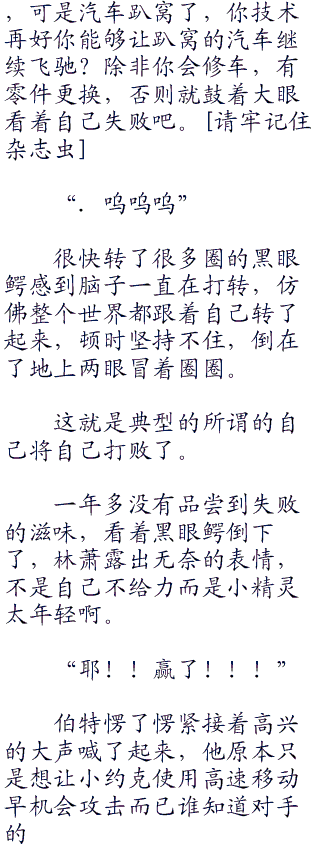 ，可是汽车趴窝了，你技术
再好你能够让趴窝的汽车继
续飞驰？除非你会修车，有
零件更换，否则就鼓着大眼
看着自己失败吧。[请牢记住
杂志虫]
“．呜呜呜”
很快转了很多圈的黑眼
鳄感到脑子一直在打转，仿
佛整个世界都跟着自己转了
起来，顿时坚持不住，倒在
了地上两眼冒着圈圈。
这就是典型的所谓的自
己将自己打败了。
一年多没有品尝到失败
的滋味，看着黑眼鳄倒下
了，林萧露出无奈的表情，
不是自己不给力而是小精灵
太年轻啊。
“耶！！赢了！！！”
伯特愣了愣紧接着高兴
的大声喊了起来，他原本只
是想让小约克使用高速移动
早机会攻击而已谁知道对手
的